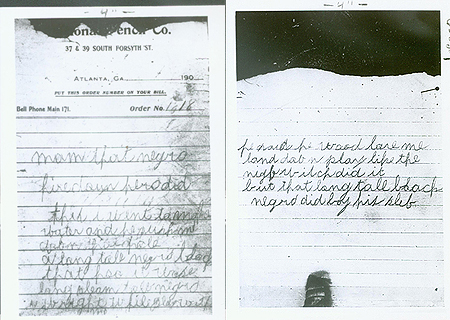 4"
Pencil Co.
37 & 39 SOUTH FORSYTH ST.
ATLANTA, GA. 190
PUT THIS ORDER NUMBER ON YOUR BILL.
Bell Phone Main 171. Order No.
mam that negro
hire down here did
this i went to make
water and he push me
down that hole
a long tall negro black
that hoo it wase
long sleam tall negro
i wright while play with
me
4"
he said he wood love me
land dab n play like the
night witch did it
but that long tall black
negro did boy his slef